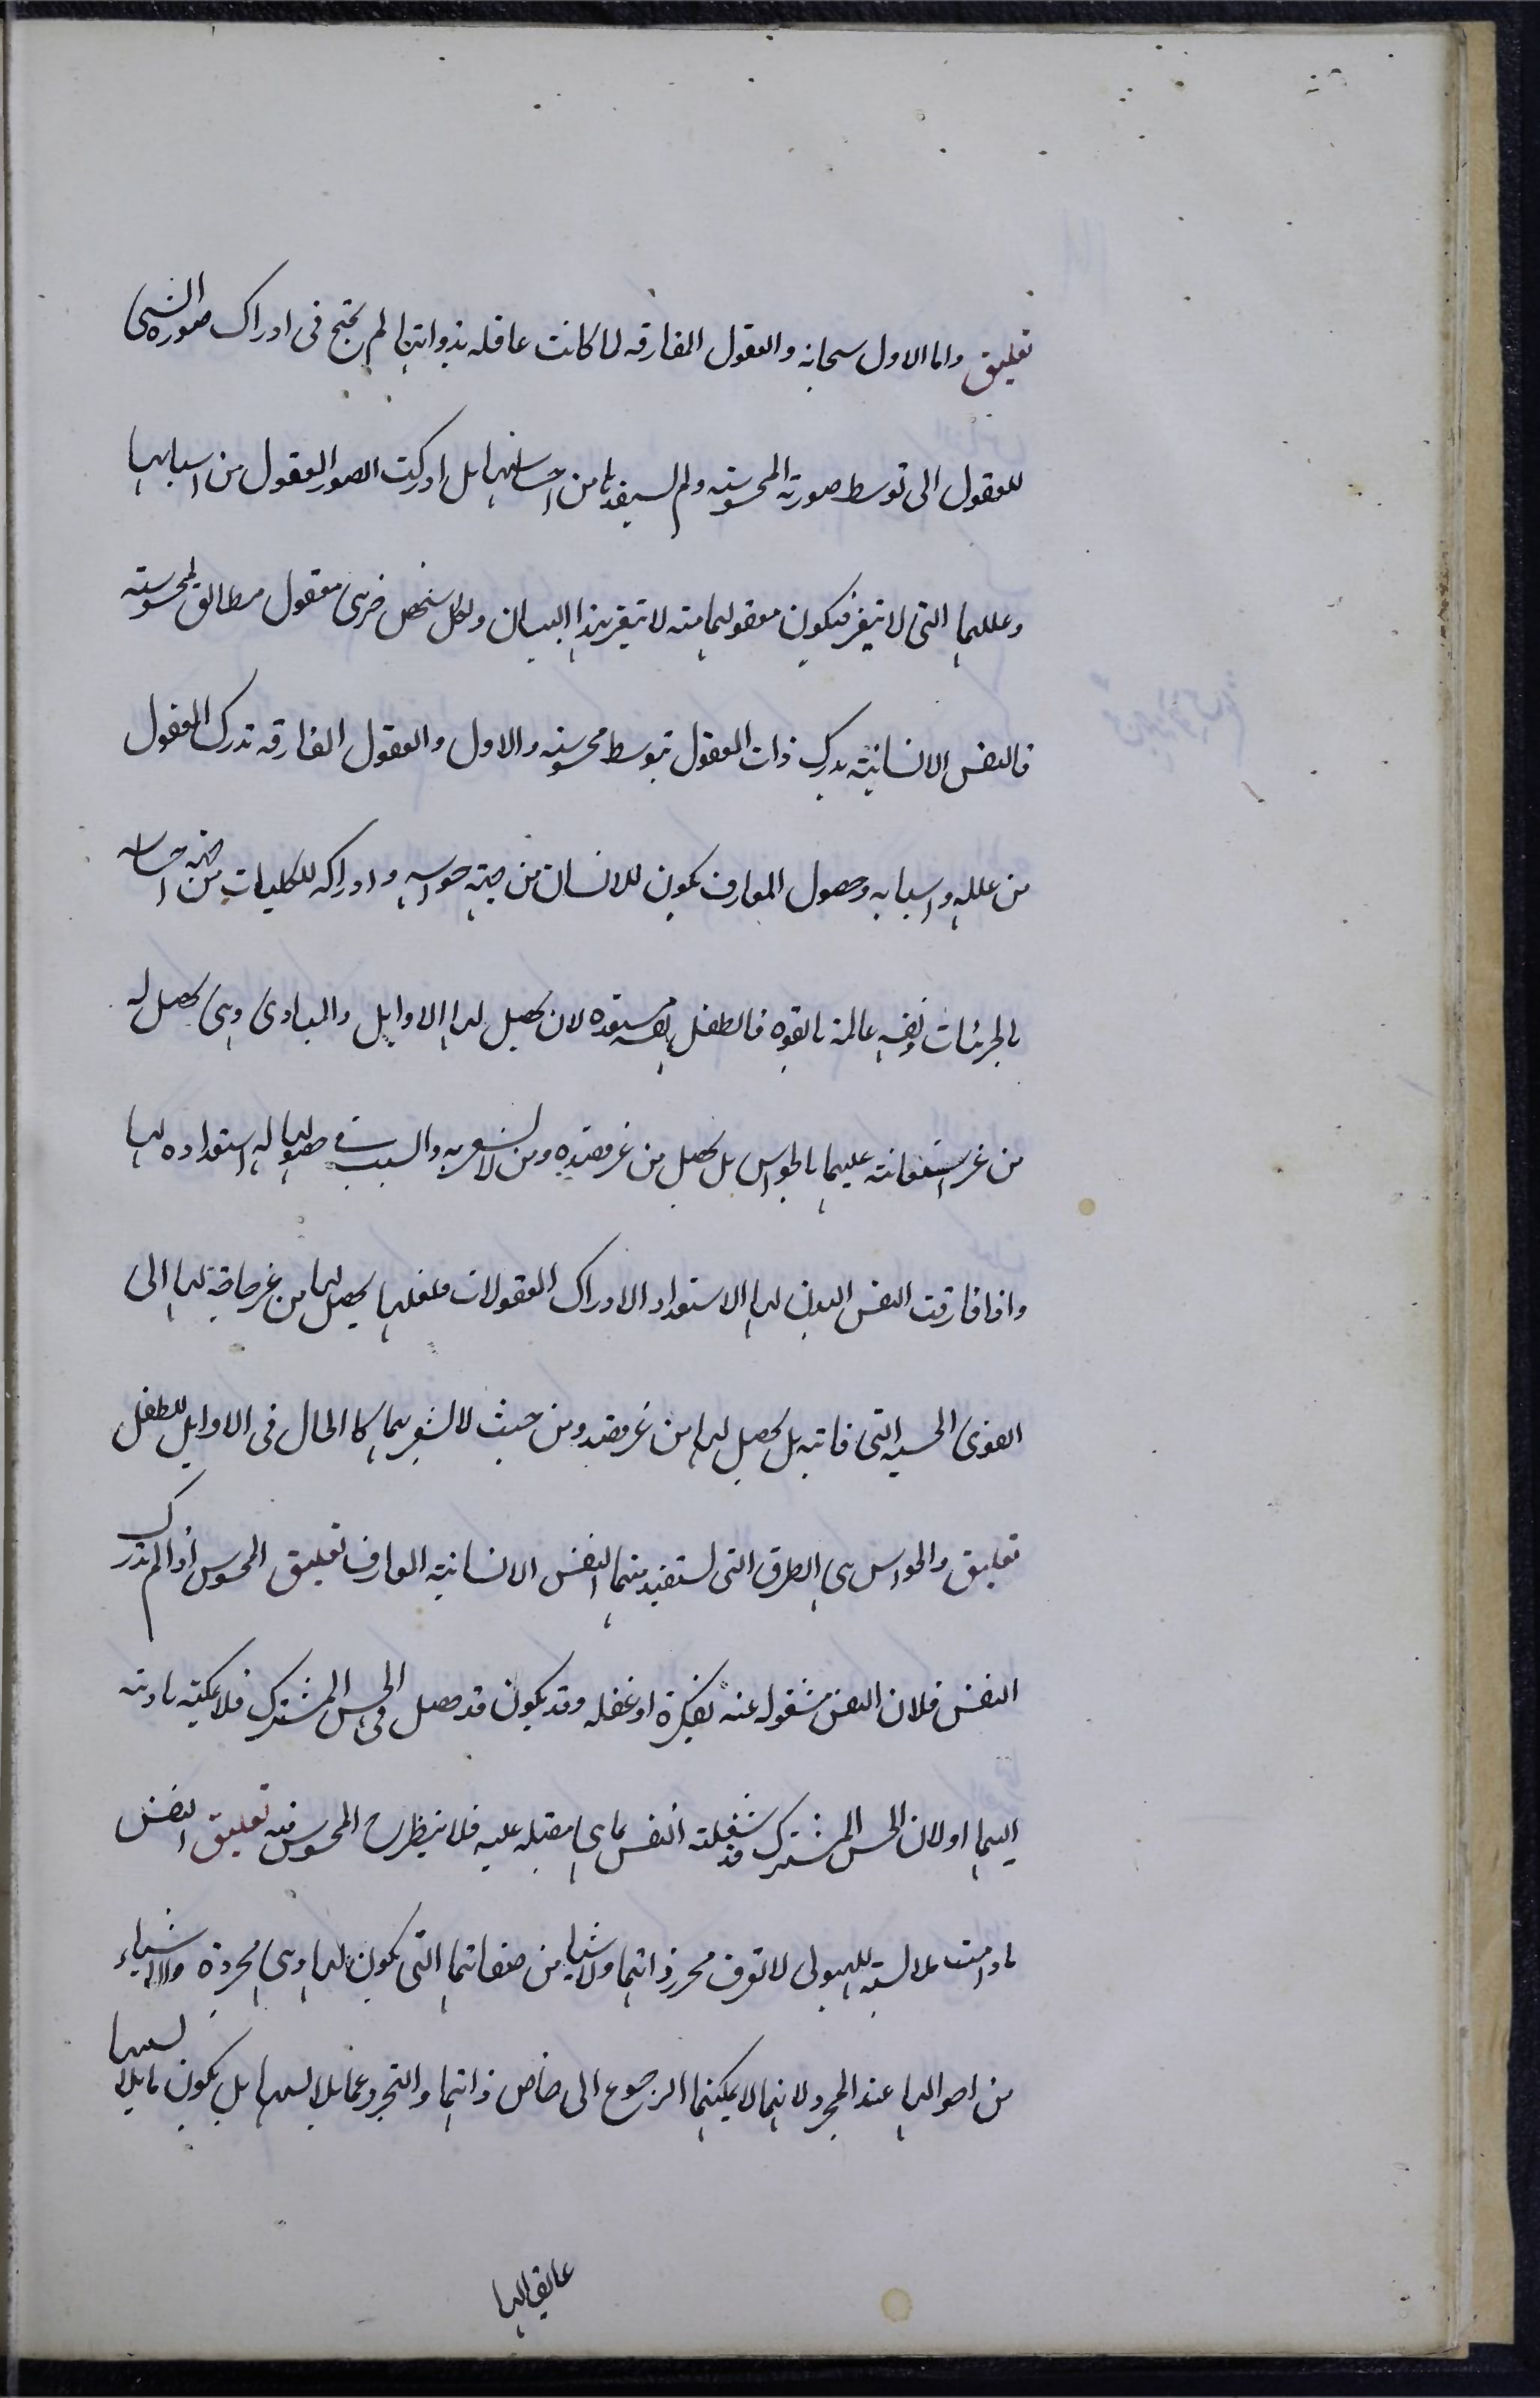 تعليق واما الاول سبحانه والعقول المفارقه لما كانت عاقله بذواتها لم تحتج فى ادراك صورة الشئ
المعقول الى توسط صورته المحسوسته ولم يستفدها من احساسها بل ادركت الصور المعقول من اسبابها
وعللها التى لا تتغير فيكون معقولها منه لا يتغير بهذا البيان ولكل شخص جزئى معقول مطابق لمحسوسته
فالنفس الانسانية يدرك ذات المعقول بتوسط محسوسته والاول والعقول المفارقه تدرك المعقول
من علله واسبابه وحصول المعارف يكون للانسان من جهة حواسه وادراكه للكليات من جهة احساسه
بالجزئيات ونفسه عالمة بالقوه فالطفل نفسه مستعده لان يحصل لها الاوايل والمبادى وهى يحصل له
من غير استعانته عليها بالحواس بل يحصل من غير قصده ومن لا يشعر به والسبب فى حصولها له استعداده لها
واذا فارقت النفس البدن لها الاستعداد الادراك المعقولات فلعلها يحصل لها من غير حاجة لها الى
القوى الحسيه التى فاتته بل يحصل لها من غير قصد ومن حيث لا يشعر بها كما الحال فى الاوايل للطفل
تعليق والحواس هى الطرق التى يستفيد منها النفس الانسانية المعارف تعليق المحسوس اذا لم تدرك
النفس فلان النفس مشغوله عنه بفكرة او غفله وقد يكون قد حصل فى الحس المشترك فلا يمكنه تاديته
اليها او لان الحس المشترك قد شغلته النفس بما هى مقبله عليه فلا ينطرح المحسوس فيه تعليق النفس
ما دامت ملابسته للهيولى لا تعرف مجرد ذاتها ولا شيا من صفاتها التى يكون لها وهى مجردة والاشياء
من احوالها عند التجرد لانها لا يمكنها الرجوع الى خاص ذاتها والتجرد عما يلابسها بل يكون ما يلابسها
عايقا لها